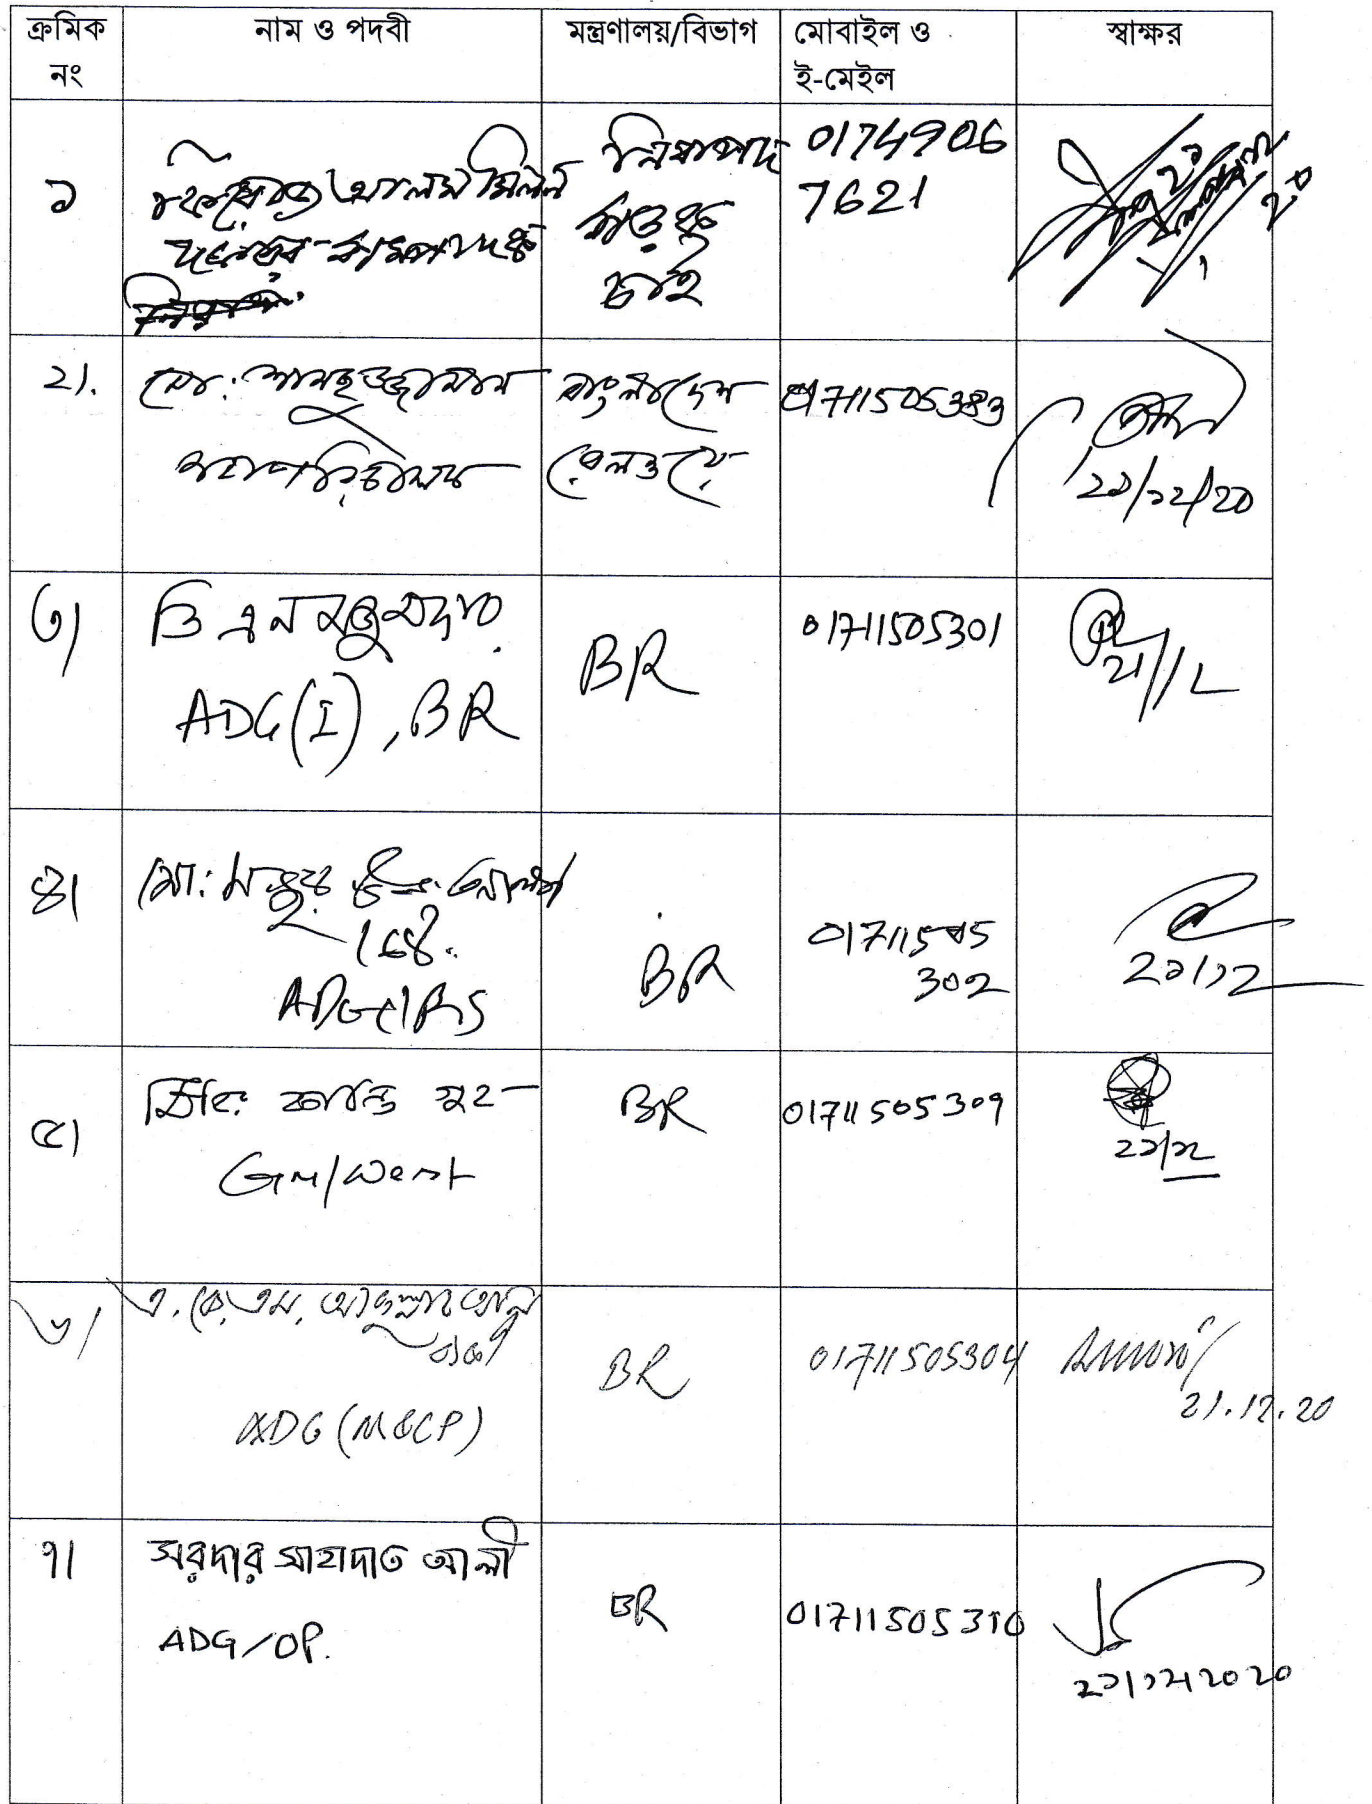 ক্রমিক নং	নাম ও পদবী	মন্ত্রণালয়/বিভাগ	মোবাইল ও ই-মেইল	স্বাক্ষর
১
আলম মিলন
নিরাপদ
চাই
01749067621
২।
মো: শামছুজ্জামান
মহাপরিচালক
বাংলাদেশ
রেলওয়ে
01711505383
২১/১২/২০
৩।
ডি এন মজুমদার
ADG(I), BR
BR
01711505301
21/12
৪।
মো: মঞ্জুর
ADG/RS
BR
01711505
302
২১/১২
৫।
মিহির কান্তি গুহ
GM/West
BR
01711505309
২১/১২
৬।
এ. কে. এম.
ADG (M&CP)
BR
01711505304
21.12.20
৭।
সরদার সাহাদাত আলী
ADG/OP.
BR
01711505310
২১/১২/২০২০